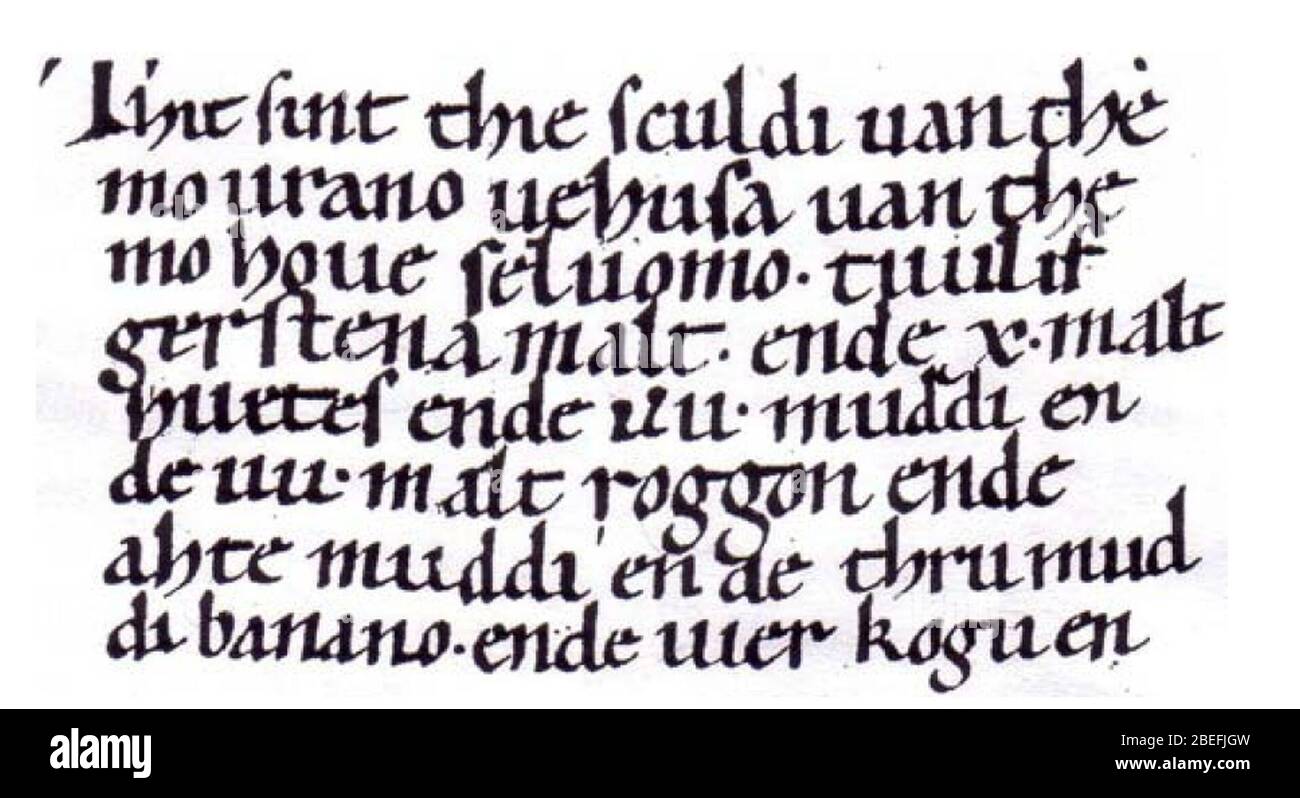 Thit sint thie sculdi uan the
mo urano uehusa uan the
mo houe seluomo· tuulif
gerstena malt· ende x· malt
huetes ende iiii· muddi en
de iiii· malt roggon ende
ahte muddi ende thru mud
di banano· ende uier kogii en
alamy
Image ID: 2BEFJGW
www.alamy.com